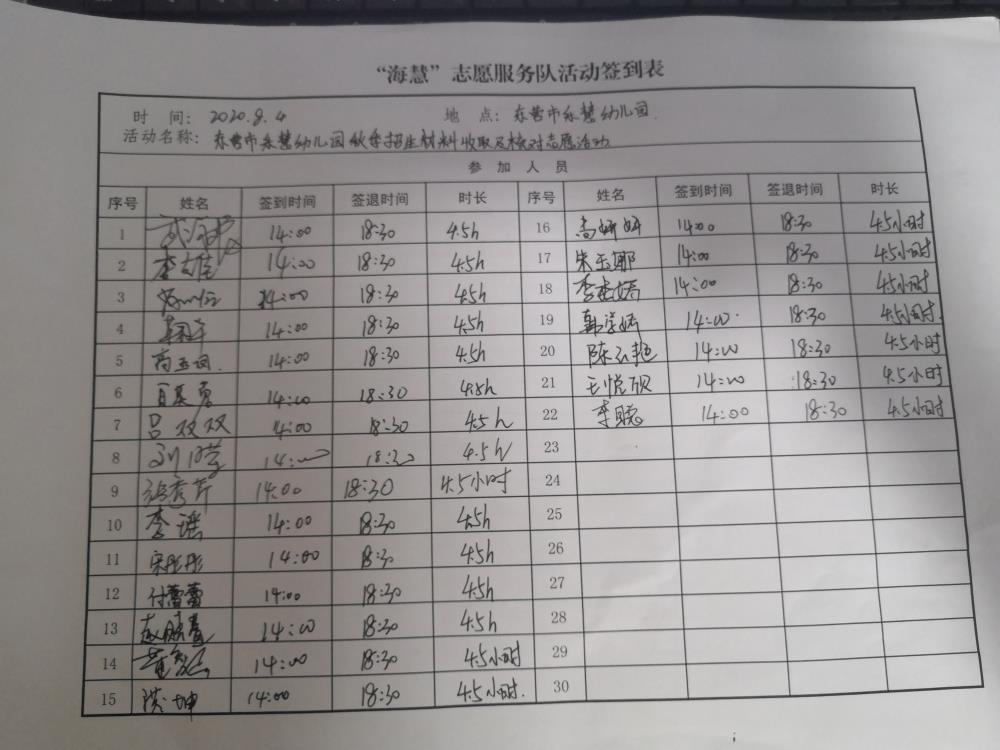 “海慧”志愿服务队活动签到表
时 间： 2020.8.4 地 点： 东营市乐慧幼儿园
活动名称： 东营市乐慧幼儿园秋季招生材料收取及核对志愿活动
参 加 人 员
序号 姓名 签到时间 签退时间 时长 序号 姓名 签到时间 签退时间 时长
1 14:00 18:30 4.5h 16 高妍妍 14:00 18:30 4.5小时
2 14:00 18:30 4.5h 17 朱玉娜 14:00 18:30 4.5小时
3 14:00 18:30 4.5h 18 14:00 18:30 4.5小时
4 14:00 18:30 4.5h 19 14:00 18:30 4.5小时
5 14:00 18:30 4.5h 20 14:00 18:30 4.5小时
6 14:00 18:30 4.5h 21 王悦欣 14:00 18:30 4.5小时
7 吕双双 14:00 18:30 4.5h 22 李聪 14:00 18:30 4.5小时
8 14:00 18:30 4.5h 23
9 14:00 18:30 4.5小时 24
10 李瑶 14:00 18:30 4.5h 25
11 宋彤彤 14:00 18:30 4.5h 26
12 付蕾蕾 14:00 18:30 4.5h 27
13 14:00 18:30 4.5h 28
14 14:00 18:30 4.5小时 29
15 14:00 18:30 4.5小时 30